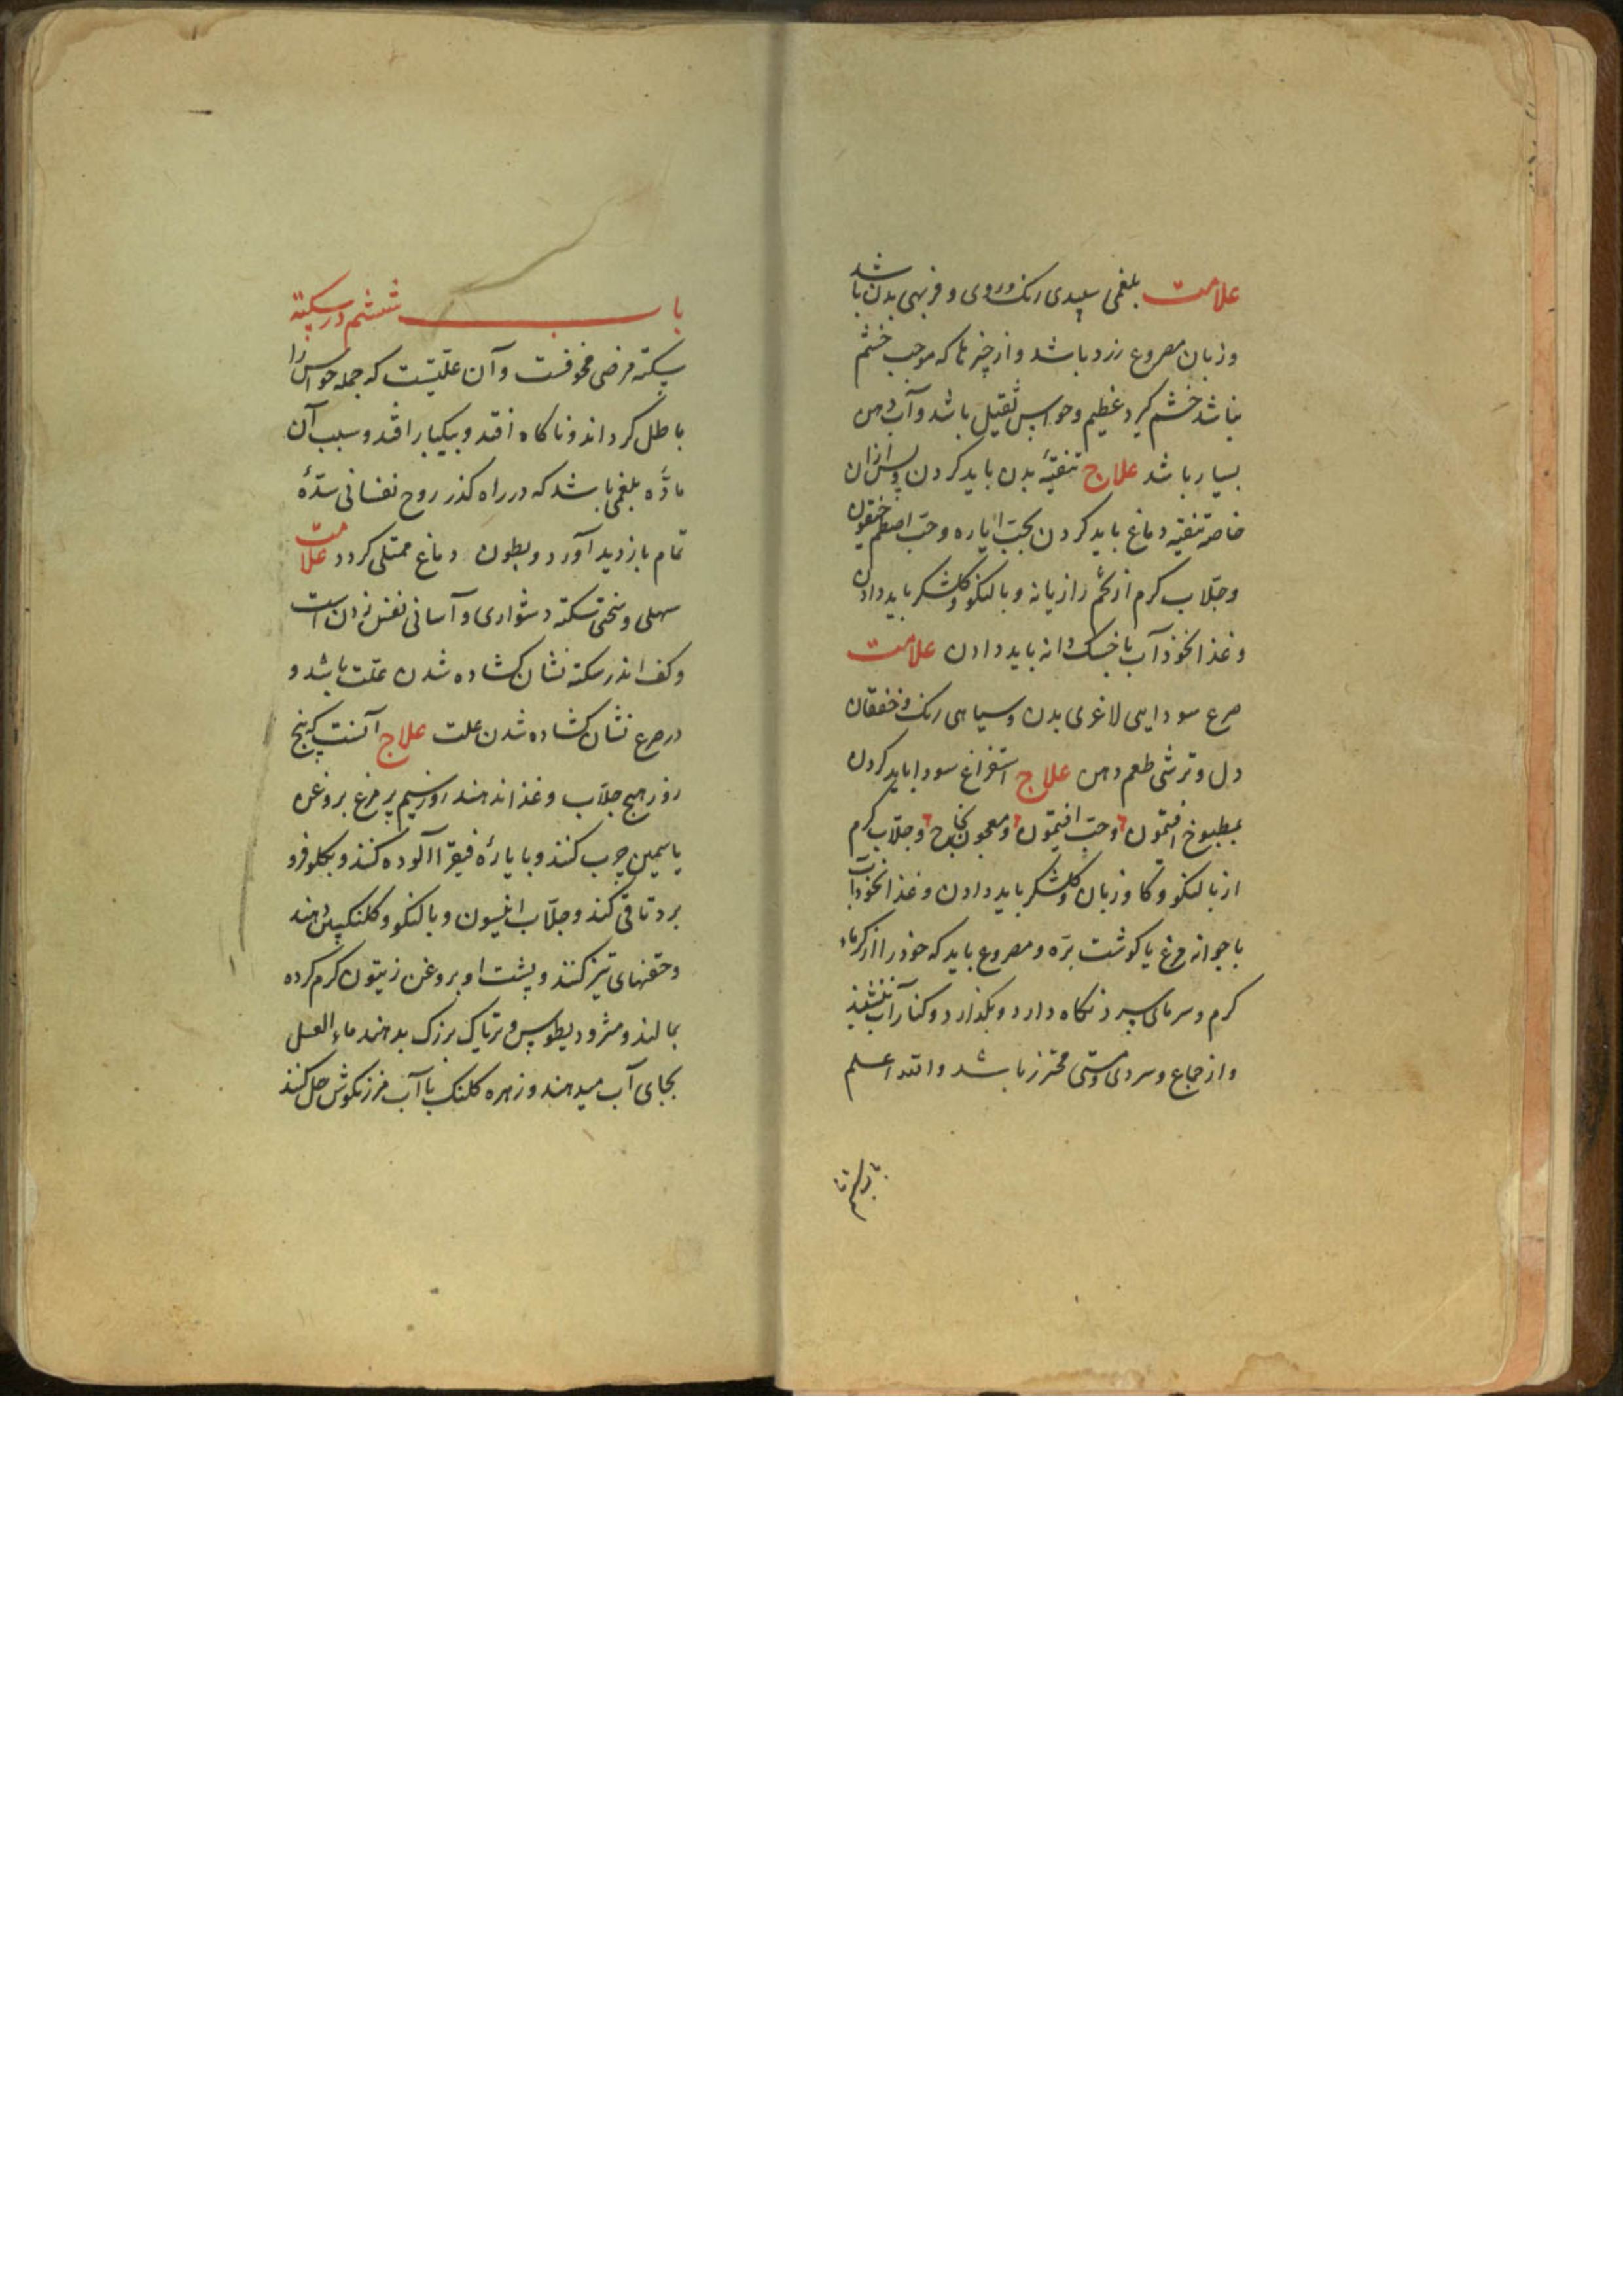 علامت بلغمی سپیدی رنک و روی و فربهی بدن باشد
و زبان مصروع زرد باشد و از چیزها که موجب خشم
نباشد خشم کیرد عظیم و حواس ثقیل باشد و آب دهن
بسیار باشد علاج تنقیهٔ بدن باید کردن و پس از ان
خاصه تنقیه دماغ باید کردن بحبّ ایاره و حبّ اصطمخیقون
و جلّاب کرم از تخم رازیانه و بالنکو و کلشکر باید دادن
و غذا نخوذآب با خسک دانه باید دادن علامت
صرع سودایی لاغری بدن و سیاهی رنک و خفقان
دل و ترشی طعم دهن علاج استفراغ سودا باید کردن
بمطبوخ افتیمون و حبّ افتیمون و معجون نجاح و جلّاب کرم
از بالنکو و کاو زبان و کلشکر باید دادن و غذا نخودآب
با جوانه مرغ یا کوشت برّه و مصروع باید که خود را از کرماء
کرم و سرمای سرد نکاه دارد و بکذارد و کنار آب ننشیند
و از جماع و سردی و مستی محترز باشد والله اعلم
باب ششم در سکته
سکته مرضی مخوفست و آن علّتیست که جمله حواس را
باطل کرداند و ناکاه افتد و بیکبار افتد و سبب آن
مادّه بلغمی باشد که در راه کذر روح نفسانی سدّهٔ
تمام بازدید آورد و بطون دماغ ممتلی کردد علامت
سهلی و سختی سکته دشواری و آسانی نفس زدن است
و کف اندر سکته نشان کشاده شدن علّت باشد و
در صرع نشان کشاده شدن علت علاج آنست که پنج
روز هیچ جلّاب و غذا ندهند روز سیم پر مرغ بروغن
یاسمین چرب کنند و بایارهٔ فیقرا آلوده کنند و بکلو فرو
برد تا قی کند و جلّاب انیسون و بالنکو و کلنکبین دهند
و حقنهای تیز کنند و پشت او بروغن زیتون کرم کرده
بمالند و مثرودیطوس و تریاک بزرک بدهند ماء العسل
بجای آب میدهند و زهره کلنک با آب مرزنکوش حل کنند